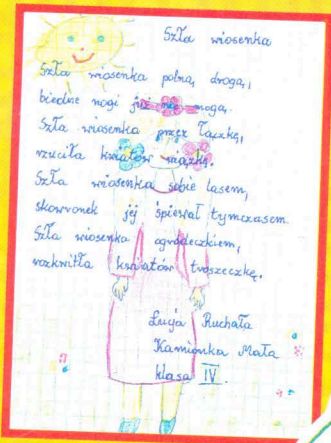 Szła wiosenka
Szła wiosenka polną drogą,
biedne nogi już nie mogą.
Szła wiosenka przez łączkę,
rzuciła kwiatów wiązkę.
Szła wiosenka sobie lasem,
skowronek jej śpiewał tymczasem.
Szła wiosenka ogródeczkiem,
rozkwitła kwiatów troszeczkę.
Łucja Ruchała
Kamionka Mała
klasa IV.